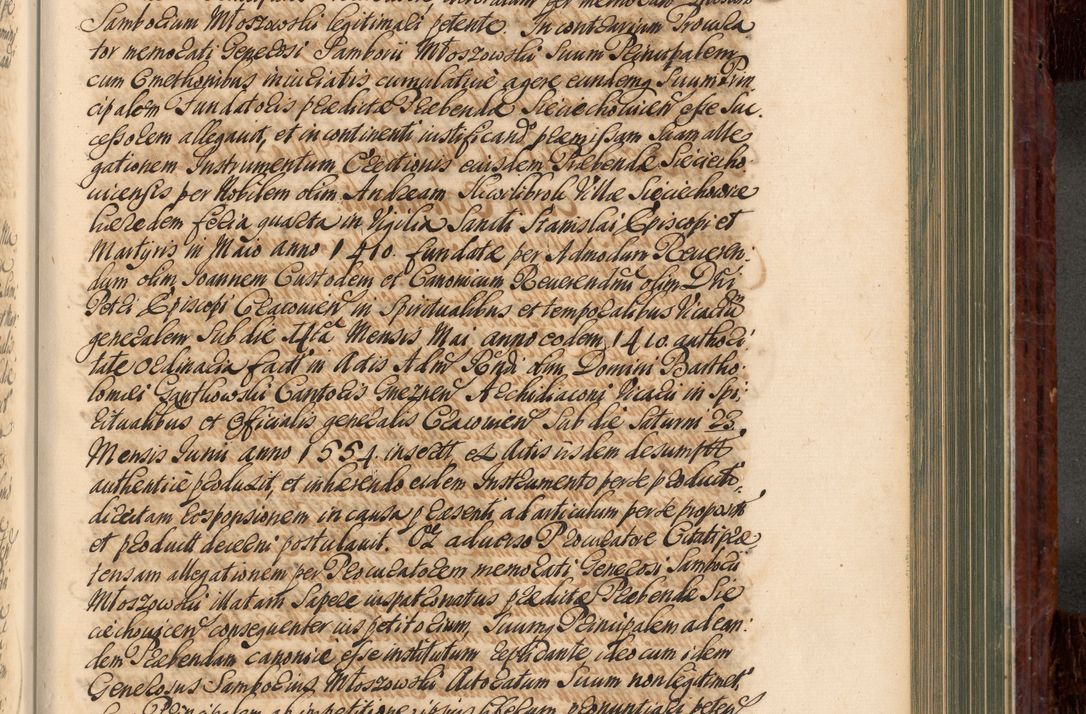 Samborium Młoszowski legitimari petente. In contrarium Procura
tor memorati Generosi Samborii Młoszowski Suum Principalem
cum Cmethonibus in iudiciatis cumulative agere eundemq Suum Prin
cipalem Fundatoris prædictæ Præbendæ Sieciechovien esse Suc.
cessorem allegavit, et in continenti iustificand præmissam Suam alle
gationem Instrumentum Erectionis eiusdem Præbendæ Sieciecho
viensis per Nobilem olim Andream Villæ Sieciechowice
hæredem feria quarta in Vigilia Sancti Stanislai Episcopi et
Martyris in Maio anno 1410. fundatæ per Admodum Reveren.
dum olim Joannem Custodem et Canonicum Reverendissimi olim Dni
Petri Episcopi Cracovien in Spiritualibus et temporalibus Vicariū
generalem Sub die 14ta Mensis Mai anno eodem 1410. authori
tate ordinaria fact in Actis Adm Rndi olim Domini Bartho.
lomæi Gantkowski Cantoris Gneznen Archidiaconi Vicarii in Spi
ritualibus et Officialis generalis Cracovien Sub die Saturni 23.
Mensis Junii anno 1554. insert et ex Actis iisdem desumptt
authentice produxit, et inhærendo eidem Instrumento per se producto,
directam responsionem in causa præsenti ad articulum per se proposit
et product decerni postulavit. Ex adverso Procuratore Citati præ
tensam allegationem per Procuratorem memorati Generosi Samborii
Młoszowski illatam Sapere iuspatronatus prædictæ Præbendæ Sie
ciechovicen consequenter ius petitorium, Suumq Principalem ad ean:
dem Præbendam canonice esse institutum replicante, ideo cum idem
Generosus Samborius Młoszowski Actoratum Suum non legitimet
Principalem ab impetitione ipsius liberum pronuntiari peten